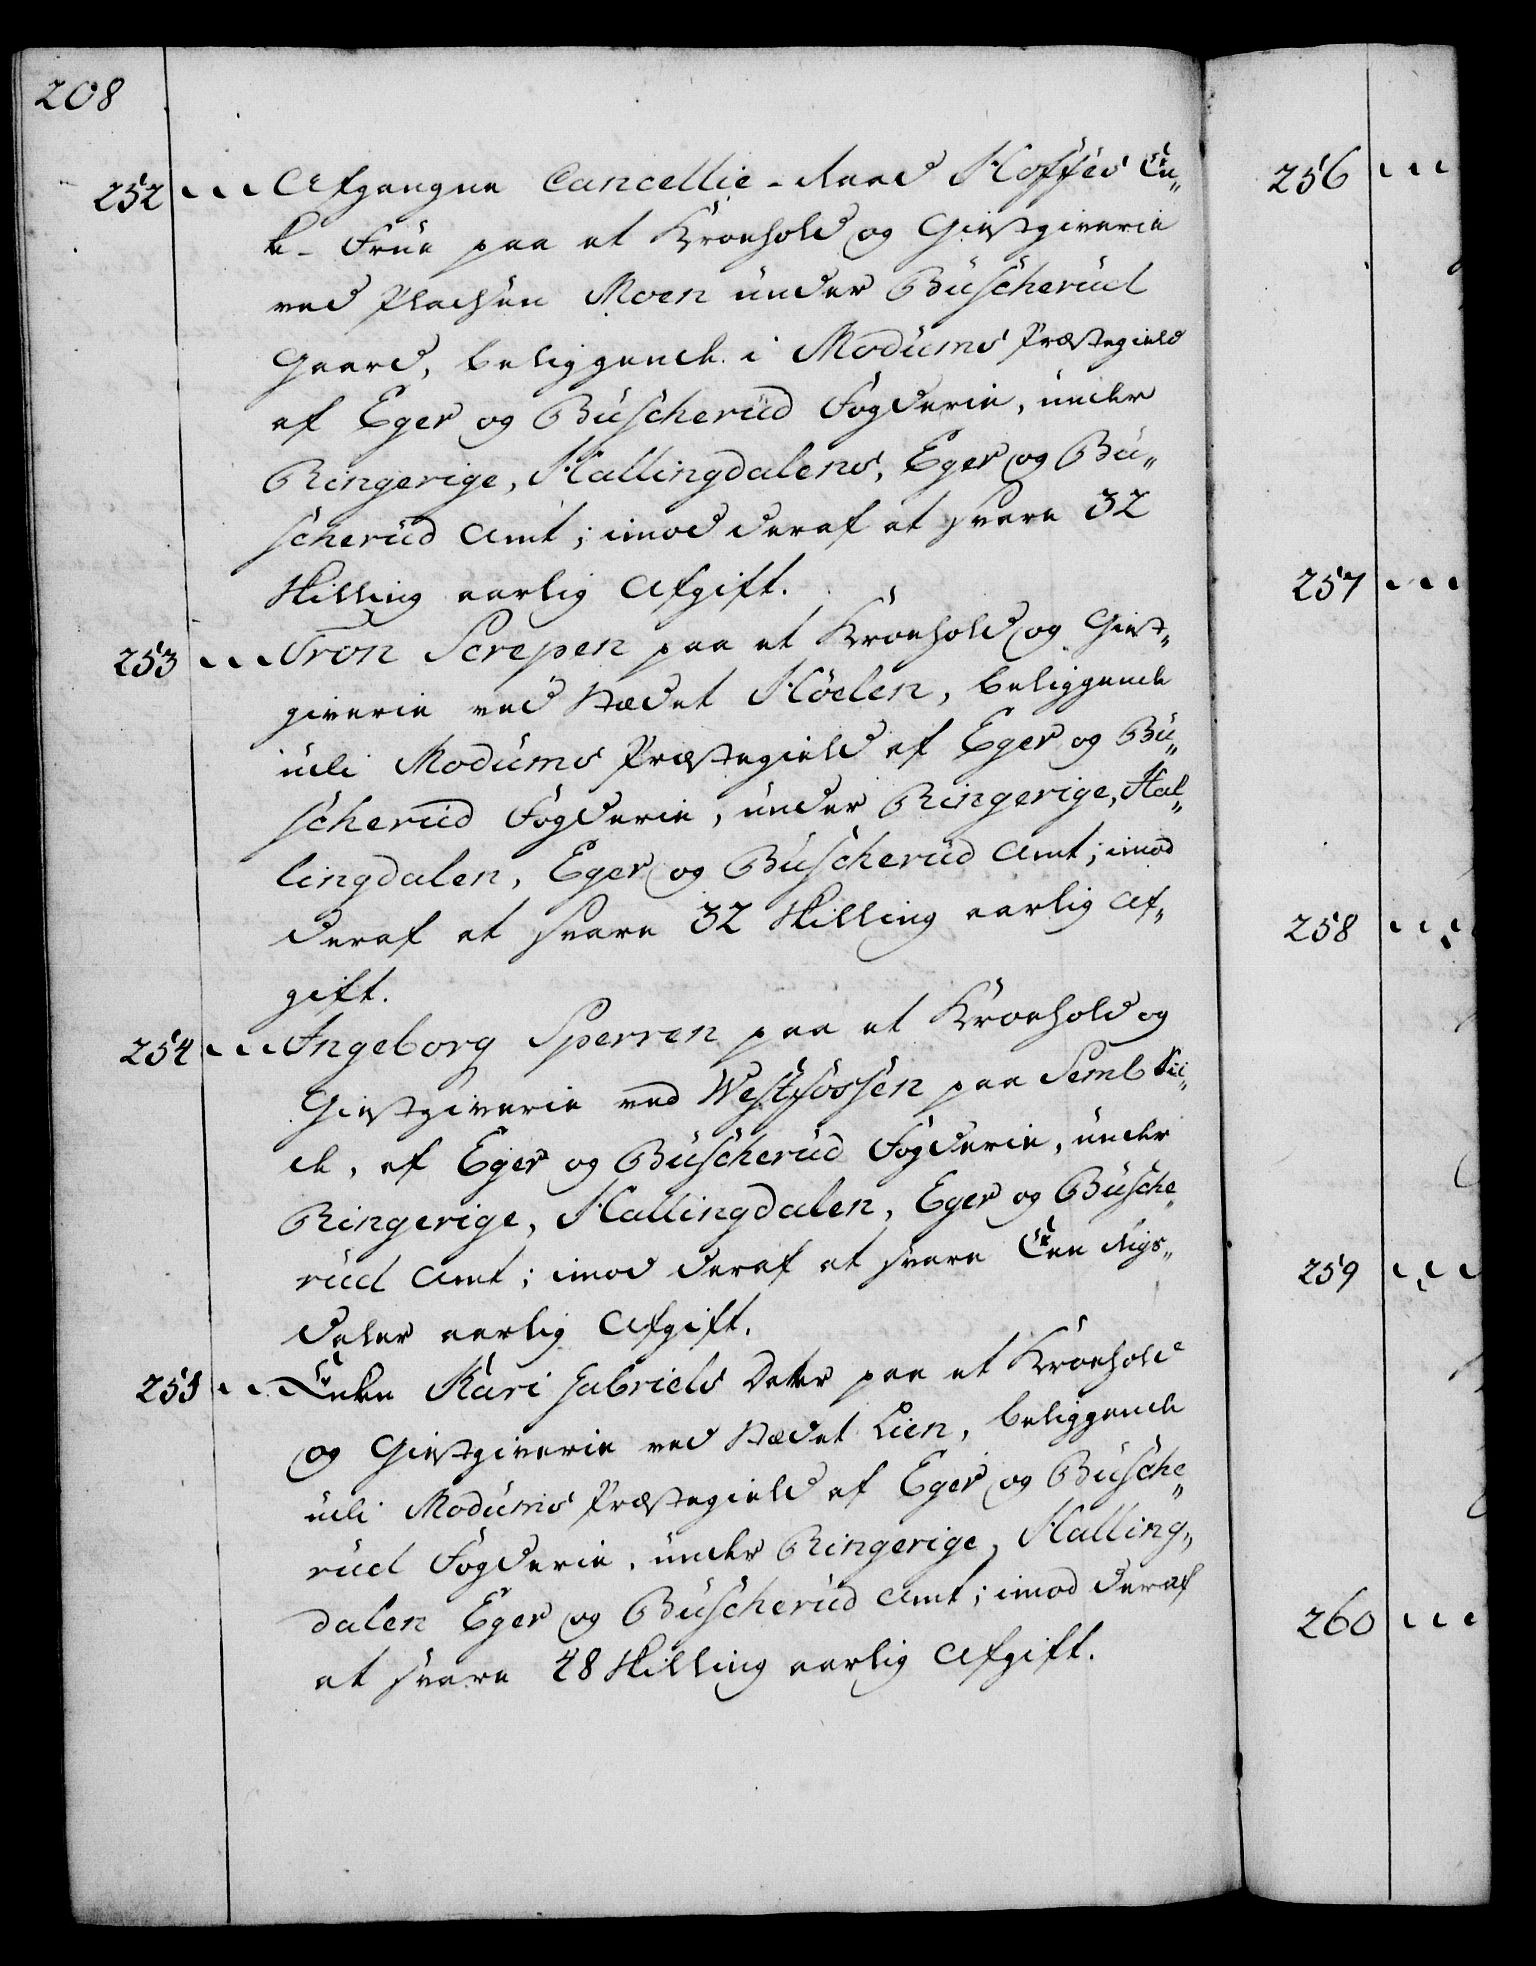 208
252 Afgangne Cancellie-Raad Hoffes En„
ke-Frue paa et Kroehold og Giestgiverie
ved Pladsen Moen under Buscherud
Gaard, beliggende i Modums Præstegield
af Eger og Buscherud Fogderie, under
Ringerige, Hallingdalens, Eger og Bu„
scherud Amt; imod deraf at svare 32
Skilling aarlig Afgift.
253 Tron Screpen paa et Kroehold og Giest„
giverie ved Stædet Høelen, beliggende
udi Modums Præstegield af Eger og Bu„
scherud Fogderie, under Ringerige, Hal„
lingdalen, Eger og Buscherud Amt; imod
deraf at svare 32 Skilling aarlig Af„
gift.
254 Ingeborg Sperren paa et Kroehold og
Giestgiverie ved Westfossen paa Semb Sii„
de, af Eger og Buscherud Fogderie, under
Ringerige, Hallingdalen, Eger og Busche„
rud Amt; imod deraf at svare Een Rigs„
daler aarlig Afgift.
255 Enken Kari Gabriels Dater paa et Kroehold
og Giestgiverie ved Stædet Lien, beliggende
udi Modums Præstegield af Eger og Busche„
rud Fogderie, under Ringerige, Halling„
dalen Eger og Buscherud Amt; imod deraf
at svare 48 Skilling aarlig Afgift.
256
257
258
259
260